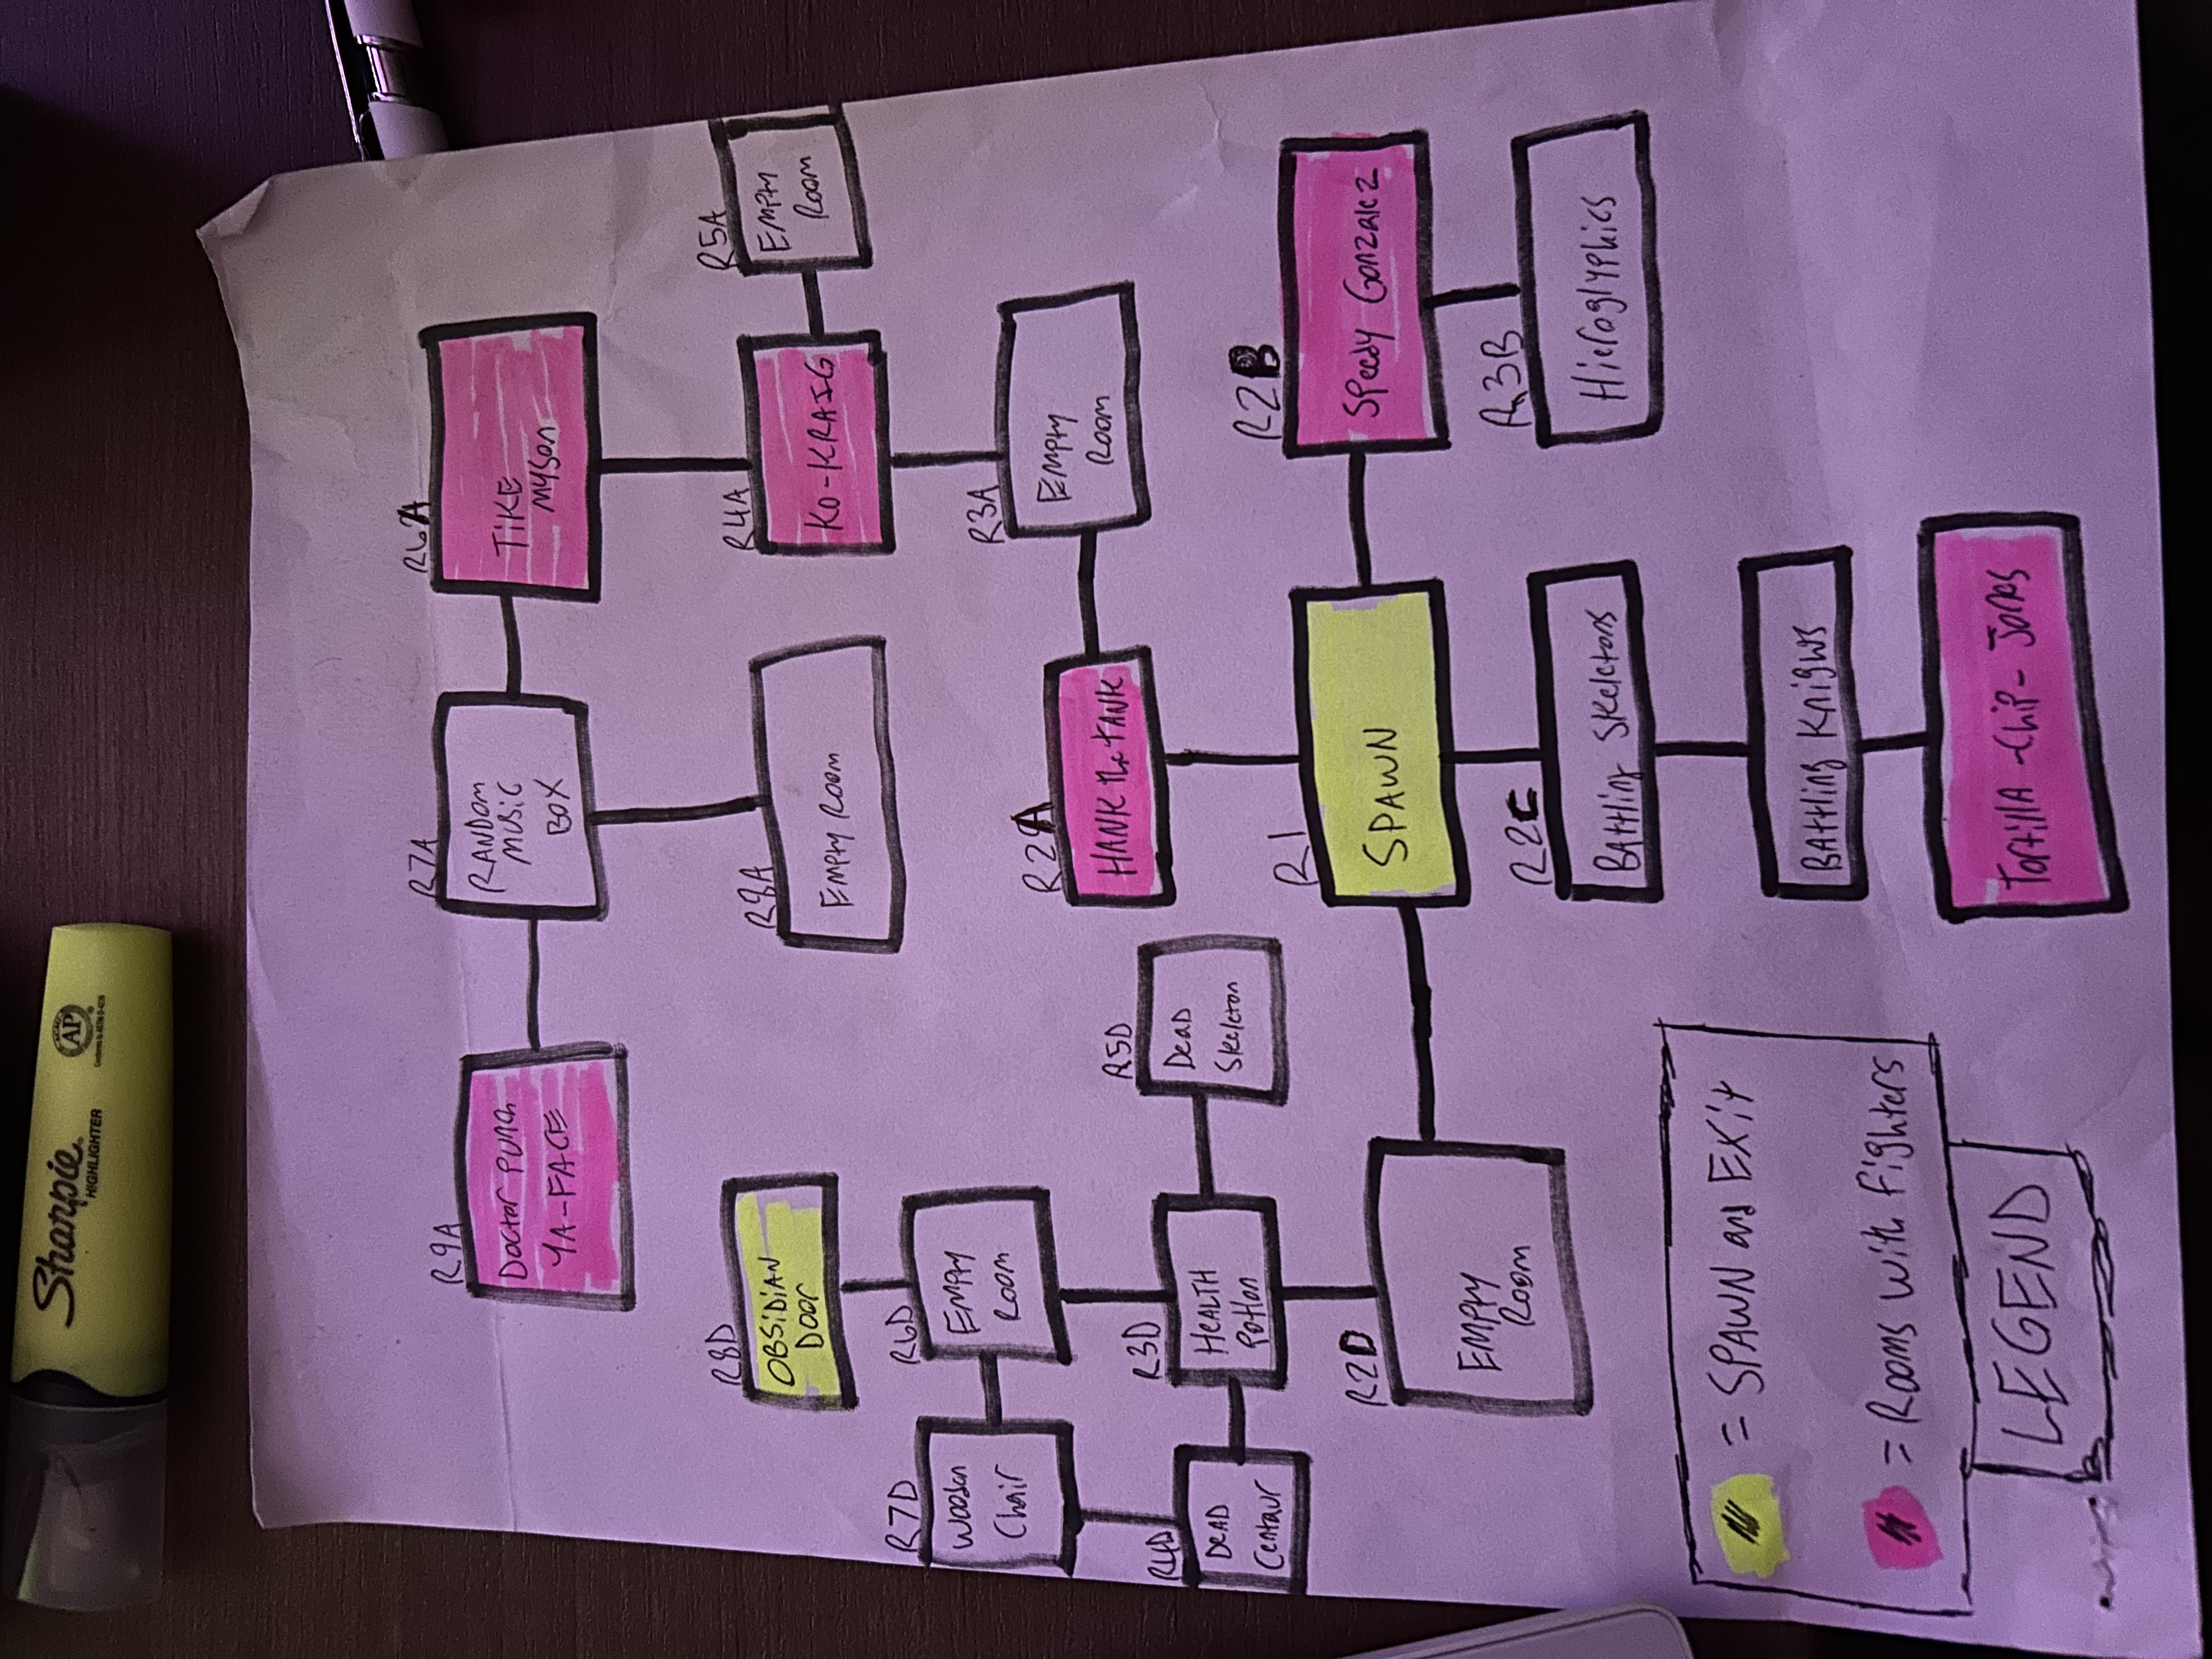 Sharpie
HIGHLIGHTER
AP
R9A
Doctor PUnch
YA-FACE
R7A
RANDom
MUSiC
BOX
R6A
TiKE
Myson
R8D
OBSiDiAN
Door
R8A
Empty Room
R4A
KO-KRAIG
R5A
Empty
Room
R7D
Wooden
Chair
R6D
Empty
Room
R2A
HANK the TANK
R3A
Empty
Room
R4D
DEAD
Centaur
R3D
HEALTH
Potion
R5D
Dead
Skeleton
R2D
EMPty
Room
R1
SPAWN
R2B
Speedy Gonzalez
R2C
BAttling Skeletons
R3B
Hieroglyphics
BAttling Knights
TortillA -Chip- Jones
= SPAWN and EXit
= Rooms with fighters
LEGEND